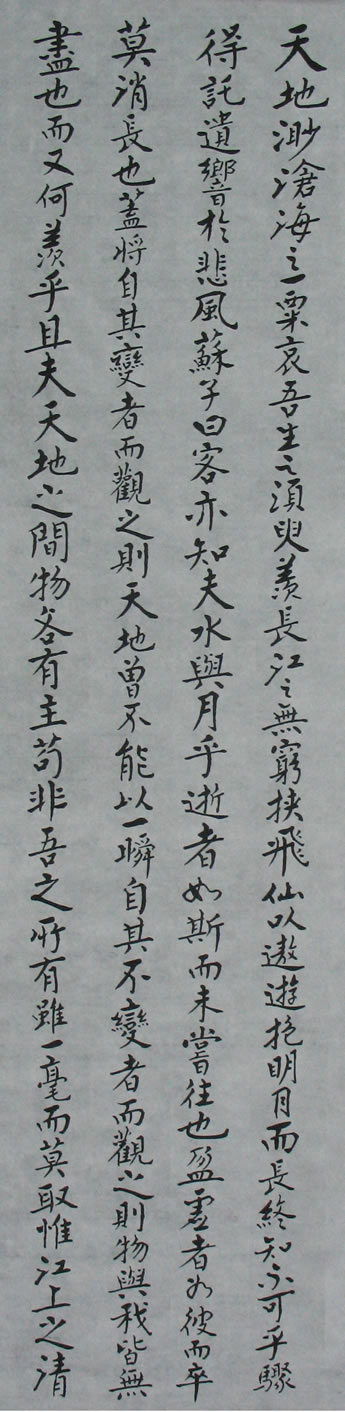 天地渺滄海之一粟哀吾生之須臾羨長江之無窮挾飛仙以遨遊抱明月而長終知不可乎驟
得託遺響於悲風蘇子曰客亦知夫水與月乎逝者如斯而未嘗往也盈虛者如彼而卒
莫消長也蓋將自其變者而觀之則天地曾不能以一瞬自其不變者而觀之則物與我皆無
盡也而又何羨乎且夫天地之間物各有主苟非吾之所有雖一毫而莫取惟江上之清